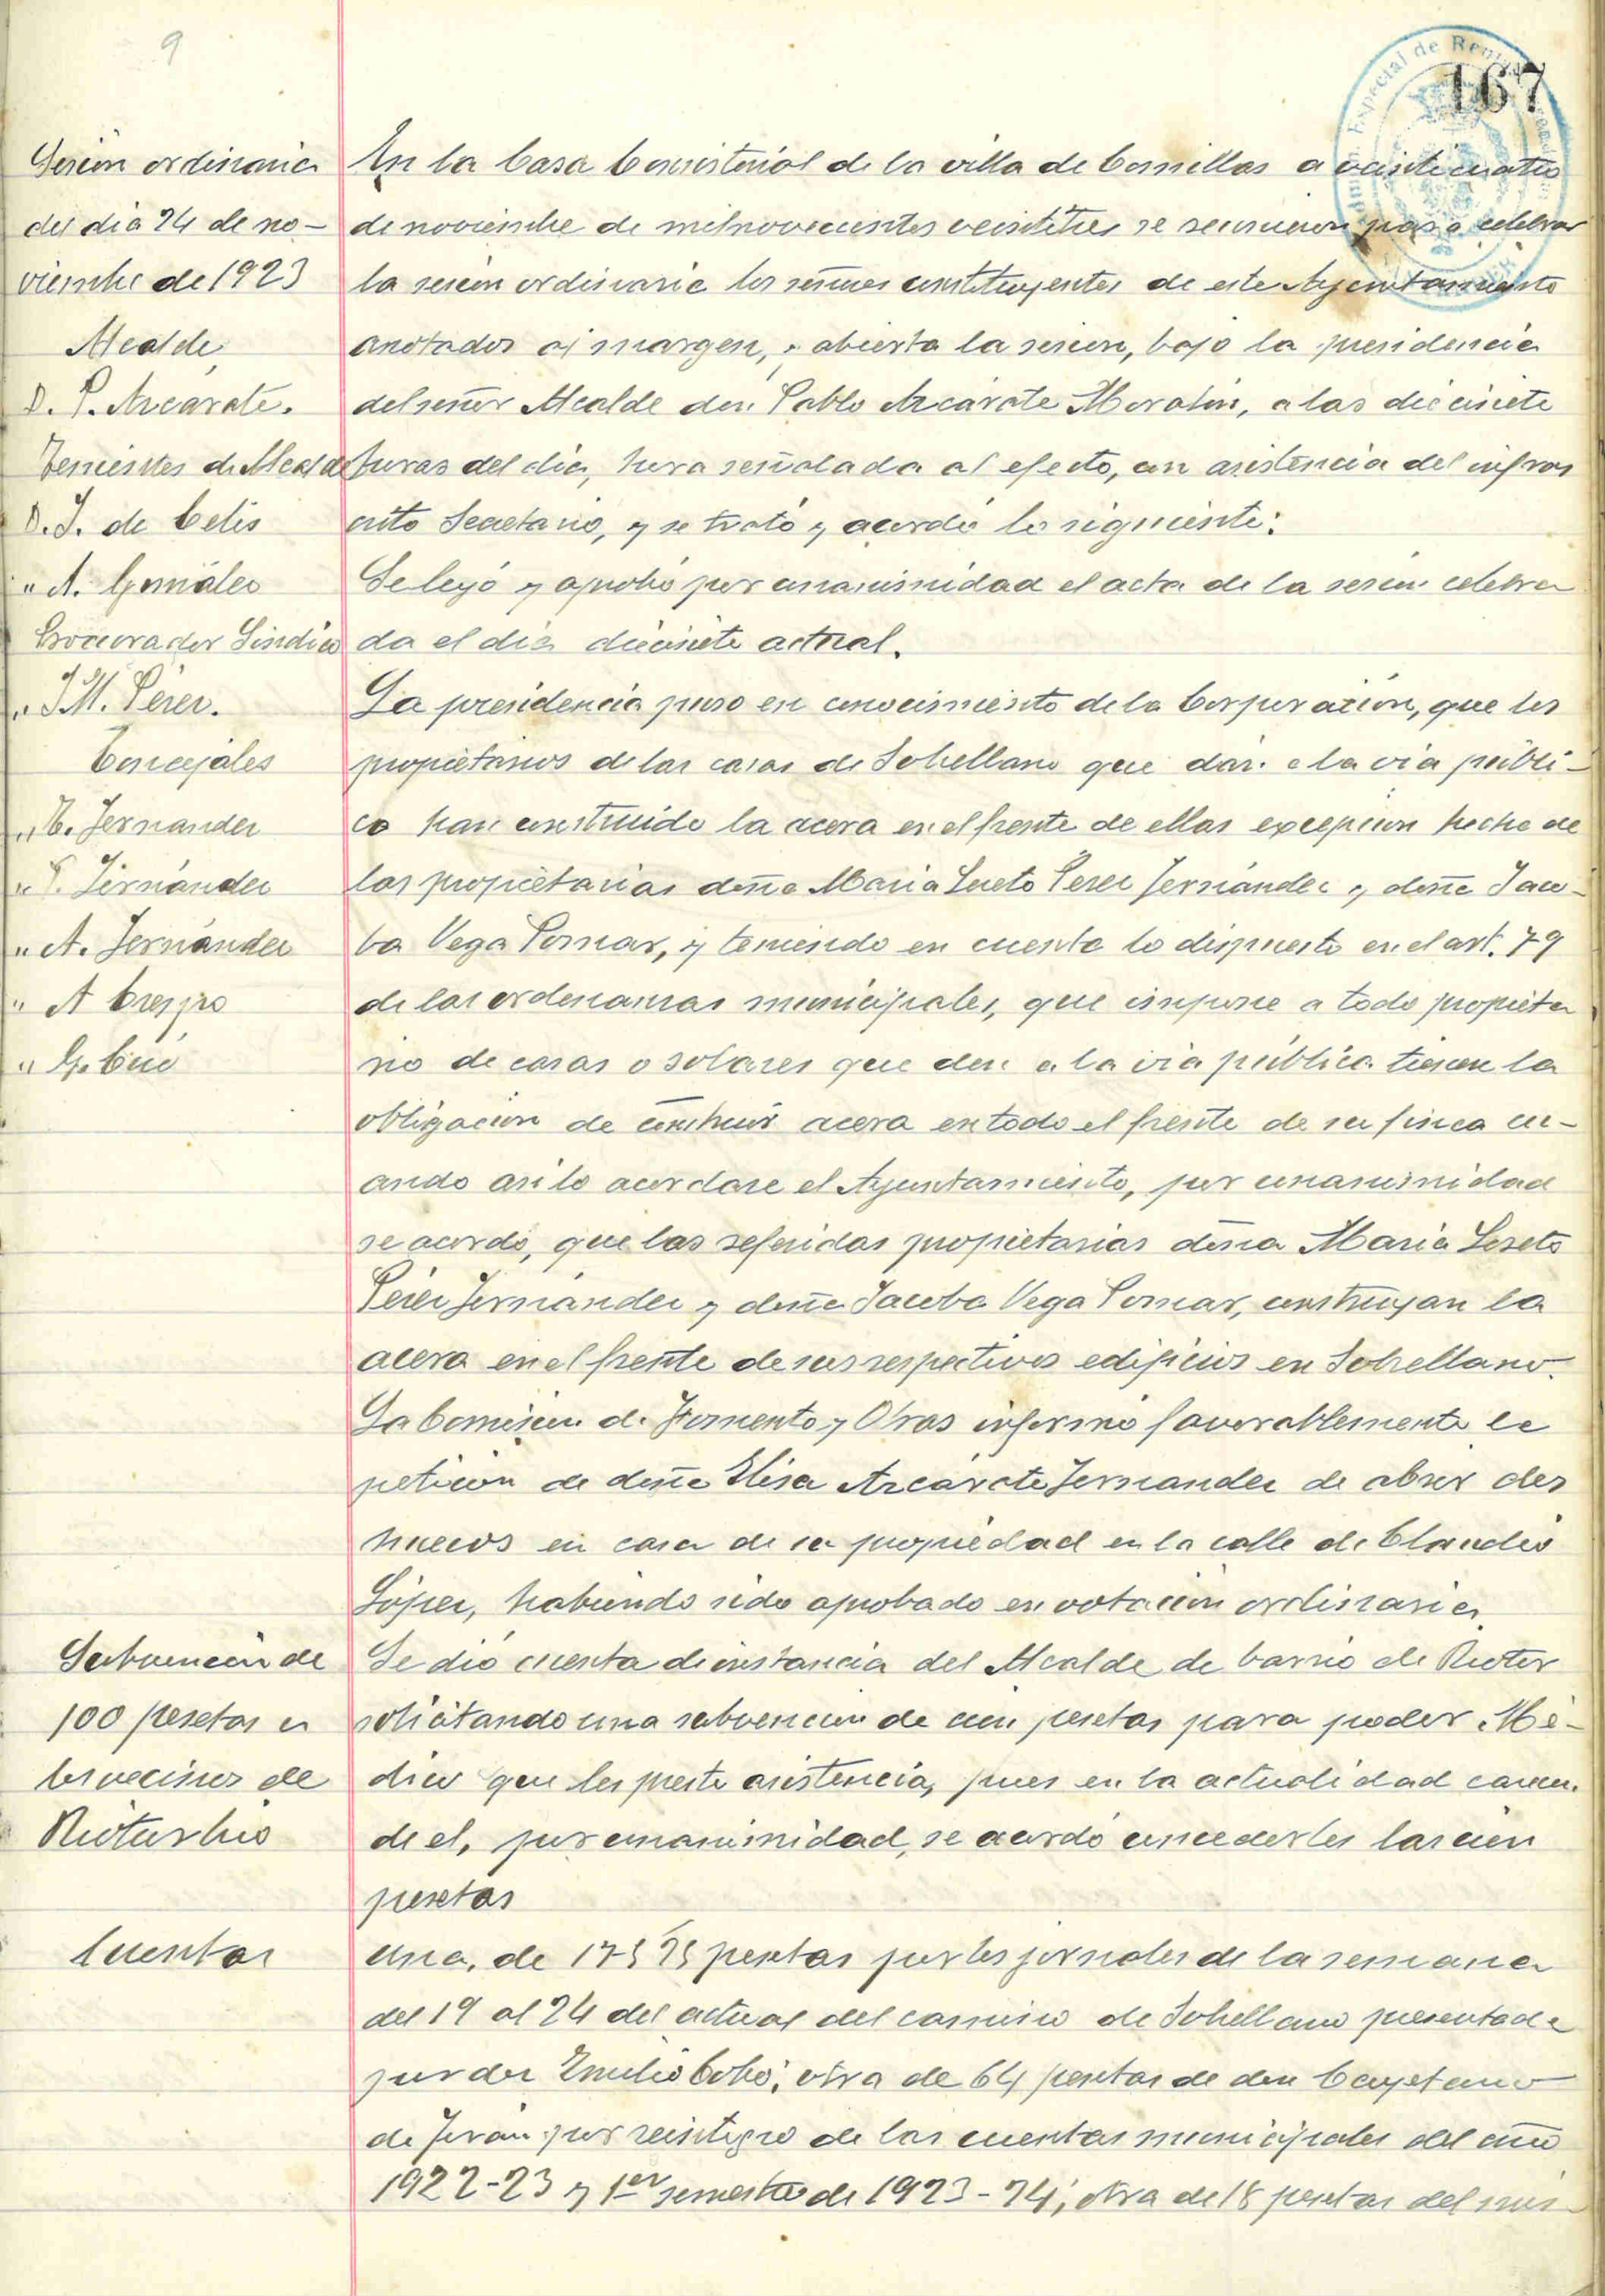 9
167
Sesión ordinaria
del dia 24 de no-
viembre de 1923
Alcalde
D. P. Arcarate.
Tenientes de Alcalde
D. J. de Celis
" A. González
Procurador Sindico
" J.M. Pérez.
Concejales
" C. Fernandez
" P. Fernández
" A. Fernández
" A Crespo
" G. Cué
En la Casa Consistorial de la villa de Comillas a veinticuatro
de noviembre de milnovecientos veintitres se reunieron para celebrar
la sesión ordinaria los señores constituyentes de este Ayuntamiento
anotados al margen, y abierta la sesion, bajo la presidencia
del señor Alcalde don Pablo Arcárate Moratin, a las diecisiete
horas del dia, hora señalada al efecto, con asistencia del infras
crito Secretario, y se trató y acordó lo siguiente:
Se leyó y aprobó por unanimidad el acta de la sesión celebra
da el dia diecisiete actual.
La presidencia puso en conocimiento de la Corporación, que los
propietarios de las casas de Sobrellano que dan a la via públi-
ca han construido la acera en el frente de ellas excepcion hecha de
las propietarias doña Maria Loreto Perez Fernández y doña Jaco-
ba Vega Pomar, y teniendo en cuenta lo dispuesto en el art. 79
de las ordenanzas municipales, que impone a todo propieta
rio de casas o solares que den a la via pública tienen la
obligacion de construir acera en todo el frente de su finca cu-
ando asi lo acordare el Ayuntamiento, por unanimidad
se acordó, que las referidas propietarias doña Maria Loreto
Pérez Fernández y doña Jacoba Vega Pomar, construyan la
acera en el frente de sus respectivos edificios en Sobrellano.
La Comision de Fomento y Obras informó favorablemente la
peticion de doña Elisa Arcárate Fernandez de abrir dos
huecos en casa de su propiedad en la calle de Claudio
López, habiendo sido aprobado en votacion ordinaria
Subvención de
100 pesetas a
los vecinos de
Rioturbio
Se dió cuenta de instancia del Alcalde de barrio de Riotur
solicitando una subvencion de cien pesetas para poder Mé-
dico que les preste asistencia, pues en la actualidad carecen
de el, por unanimidad, se acordó concederles las cien
pesetas
Cuentas
Una, de 175 75 pesetas por los jornales de la semana
del 19 al 24 del actual del camino de Sobrellano presentada
por don Emilio Cobo; otra de 64 pesetas de don Cayetano
de Teran por reintegro de las cuentas municipales del año
1922-23 y 1er semestre de 1923-24; otra de 18 pesetas del mis